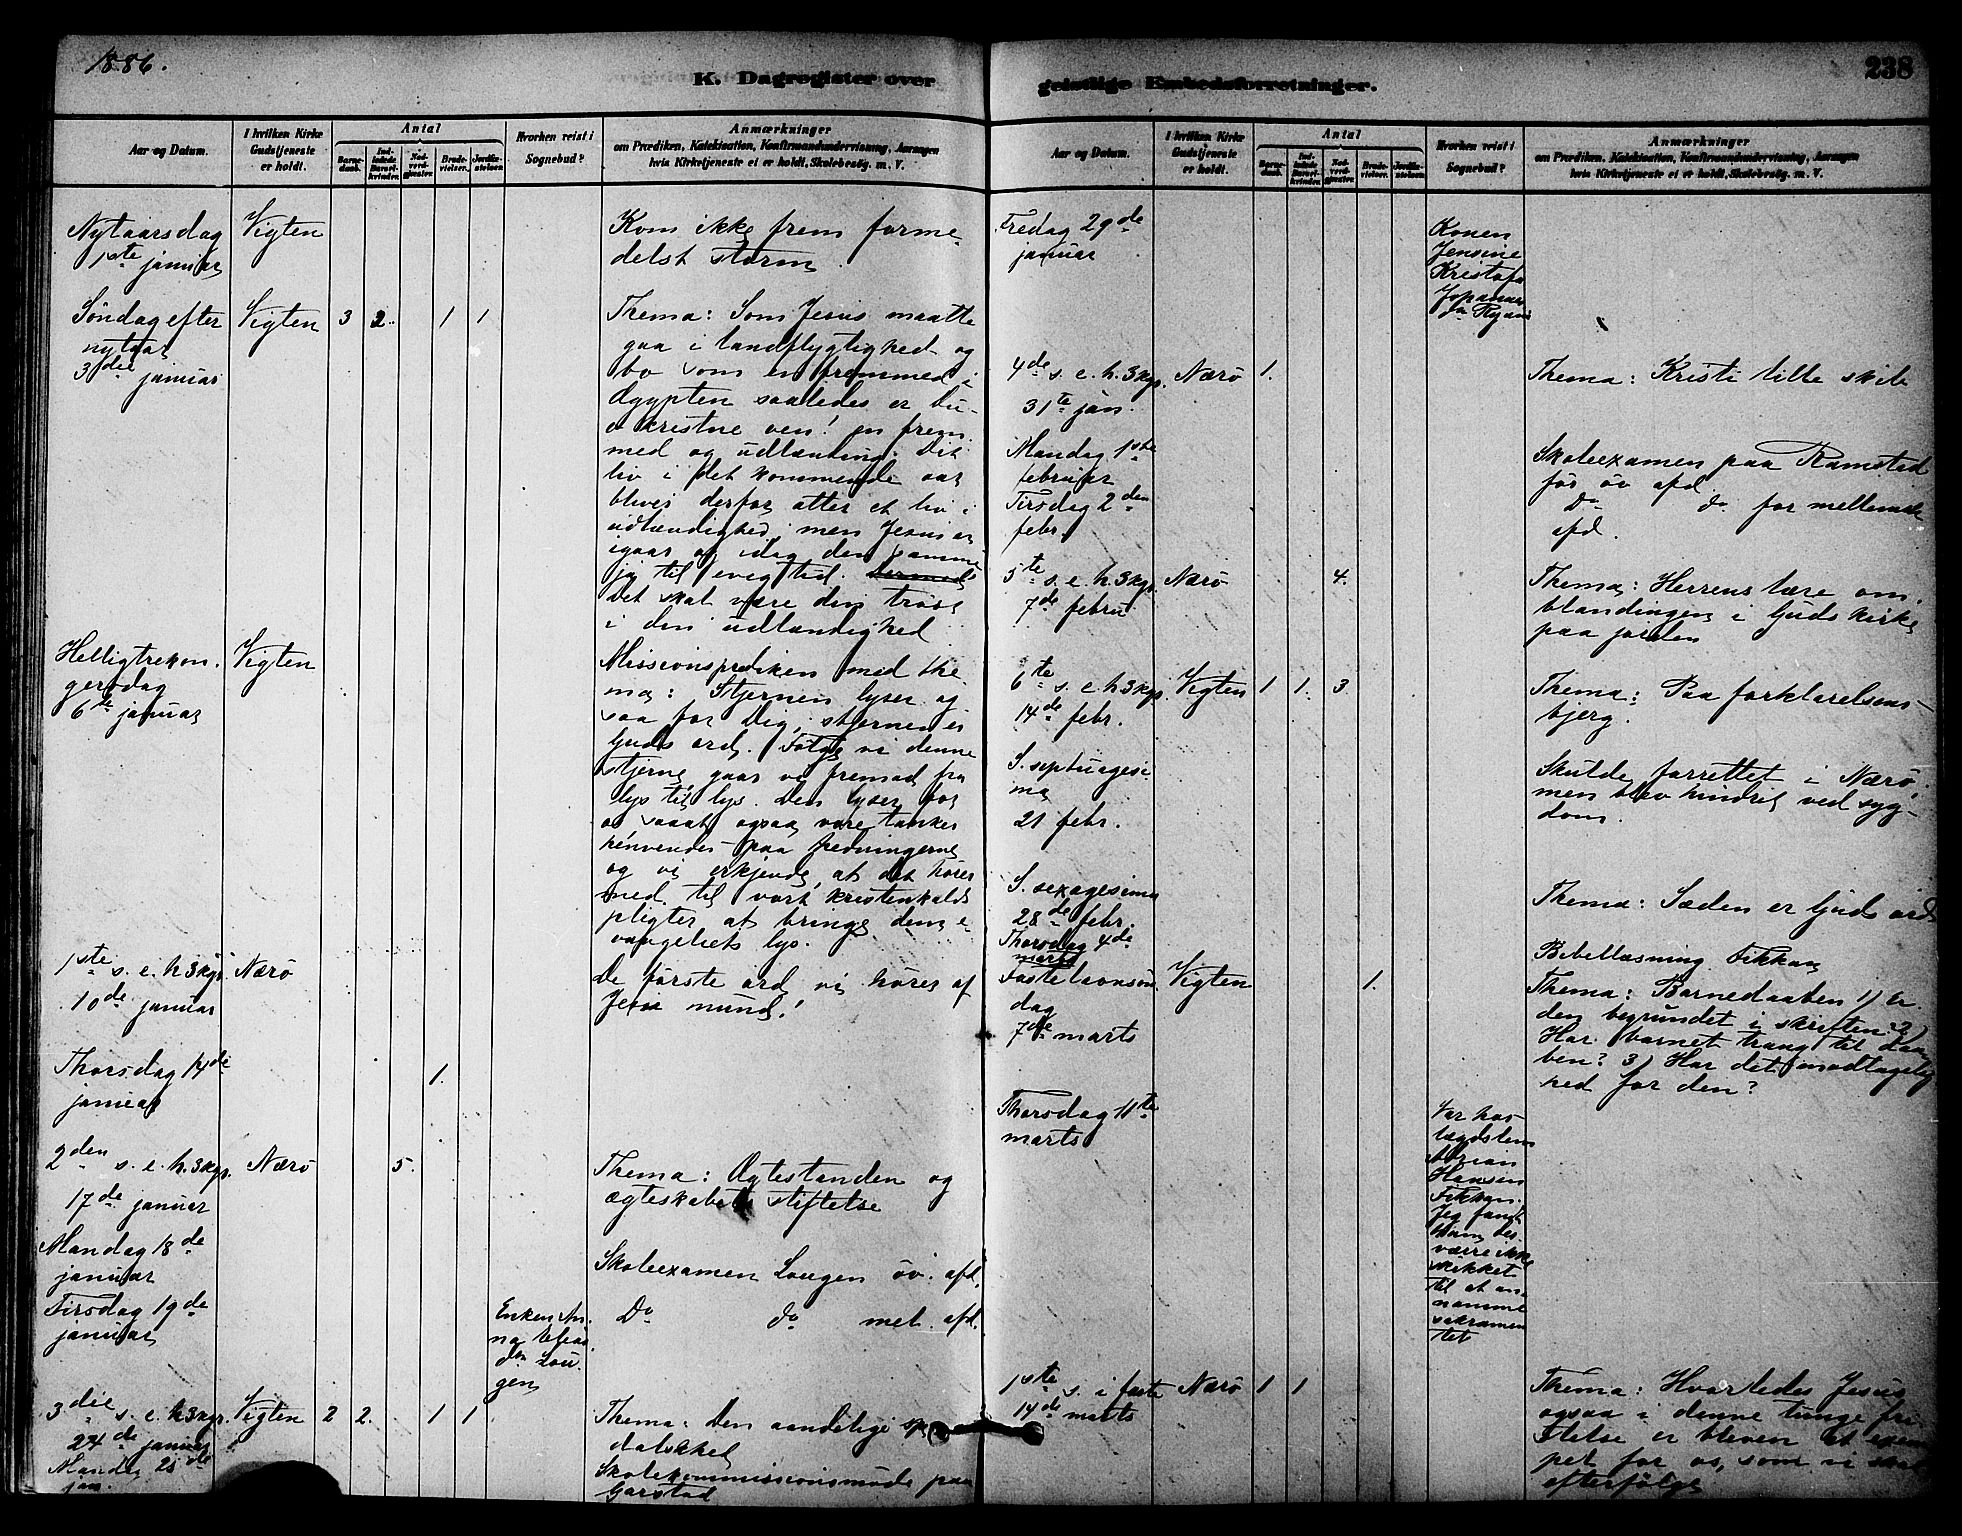 1886.
K. Dagregister over
geistlige Embedsforretninger.
238
Aar og Datum.
I hvilken Kirke Gudstjeneste er holdt.
Antal
Barnedaab.
Indledede Barselkvinder.
Nadverdgjæster.
Brudevielser.
Jordfæstelser.
Hvorhen reist i Sognebud?
Anmærkninger
om Prædiken, Katekisation, Konfirmandundervisning, Aarsagen
hvis Kirketjeneste ei er holdt, Skolebesøg. m. V.
Nytaarsdag
1ste januar
Vigten
Kom ikke frem forme-
delst storm
Søndag efter
nytaar
3die januar
Vigten 3 2. 1 1
Thema: Som Jesus maatte
gaa i landflygtighed og
bo som en fremmed i
Ægypten saaledes er du
o kristne ven! en frem
med og udlænding. Dit
liv i det kommende aar
bliver derfor atter et liv i
udlændighed, men Jesus er
igaar og idag den samme
ja til evig tid.
Det skal være din trøst
i din udlændighed
Helligtrekon.
gersdag
6te januar
Vigten
Missionsprediken med the
ma: Stjernen lyser og
saa for Dig, stjernen er
Guds ord. Følge vi denne
stjerne gaar vi fremad fra
lys til lys. Den lyser for
os saaat ogsaa vore tanker
henvendes paa hedningerne
og vi erkjende, at det hører
med til vort kristenkalds
pligter at bringe dem e-
vangeliets lys.
1ste s. e. h 3kgr
10de januar
Nærø
De første ord vi hører af
Jesu mund!
Thorsdag 14de
januar
1.
2den s. e. h. 3kgr.
17de januar
Nærø 5.
Thema: Ægtestanden og
ægteskabets stiftelse
Mandag 18de
januar
Skoleexamen Lougen öv. afd.
Tirsdag 19de
januar
Enken An.
na
Lou.
gen
Do do mel. afd.
3die s. e. h 3kgr.
24de januar
Vigten 2 2. 1 1
Thema: Den aandelige spe
dalskhed
Mandag 25de
jan.
Skolekommissionsmøde paa
Garstad
Aar og Datum.
I hvilken Kirke Gudstjeneste er holdt.
Antal
Barnedaab.
Indledede Barselkvinder.
Nadverdgjæster.
Brudevielser.
Jordfæstelser.
Hvorhen reist i Sognebud?
Anmærkninger
om Prædiken, Katekisation, Konfirmandundervisning, Aarsagen
hvis Kirketjeneste ei er holdt, Skolebesøg. m. V.
Fredag 29de
januar
Konen
Jensine
Kristofa
4de s. e. h. 3kgr.
31te jan.
Nærø 1.
Thema: Kristi lille skib
Mandag 1ste
februar
Skoleexamen paa Ramstad
for öv afd
Tirsdag 2den
febr.
Do do for mellemste
afd.
5te s. e. h. 3kgr
7de febru
Nærø 4.
Thema: Herrens lære om
blandingen i Guds kirke
paa jorden
6te s. e h 3kgr.
14de febr.
Vigten 1 1. 3.
Thema: Paa forklarelsens-
bjerg.
S. septuagesi
ma
21 febr.
Skulde forrettet i Nærø,
men blev hindret ved syg-
dom.
S. sexagesima
28de febr.
Thema: Sæden er Guds ord
Thorsdag 4de
marts
Bibellæsning Fikkan
Fastelavnssøn.
dag
7de marts
Vigten 1.
Thema: Barnedaaben 1) Er
den begrundet i skriften? 2)
Har barnet trang til daa
ben? 3) Har det modtagelig
hed for den?
Thorsdag 11te
marts
Var hos
lægdslem
Adrian
Hansen
Fikkan.
Jeg fandt
ham des.
værre ikke
skikket
til at an-
namme
sakramen
tet
1ste s. i faste
14de marts
Nærø 1 1
Thema: Hvorledes Jesus
ogsaa i denne tunge fri
stelse er bleven et exem
pel for os, som vi skal
efterfølge